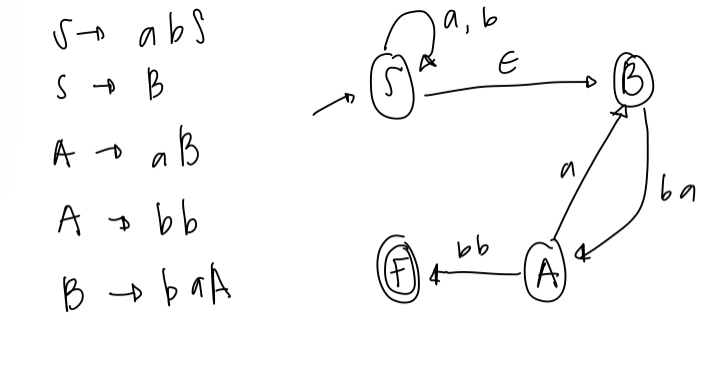 S → abS
S → B
A → aB
A → bb
B → baA
a, b
S
ϵ
B
a
ba
bb
F
A